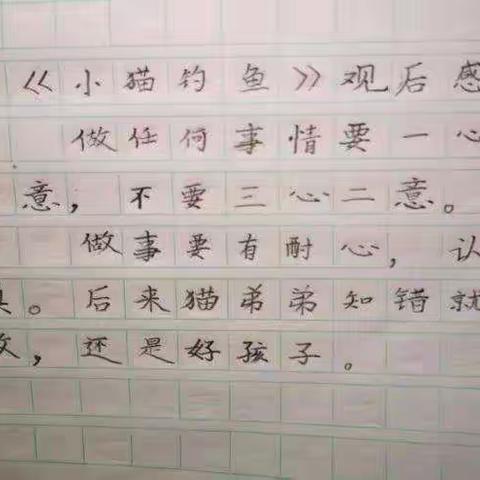 《小猫钓鱼》观后感
做任何事情要一心
意，不要三心二意。
做事要有耐心，认
真。后来猫弟弟知错就
改，还是好孩子。